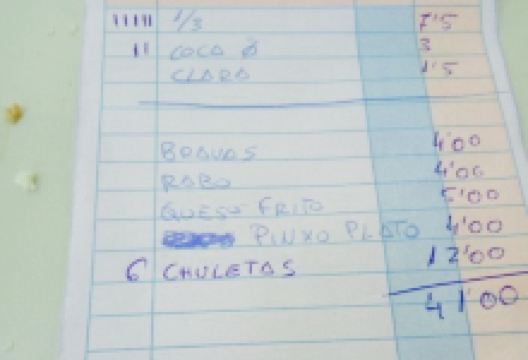 IIIII 1/3 7'5
II COCA Ø 3
CLARA 1'5
BRAVAS 4'00
RABO 4'00
QUESO FRITO 5'00
PINXO PLATO 4'00
6 CHULETAS 12'00
41'00